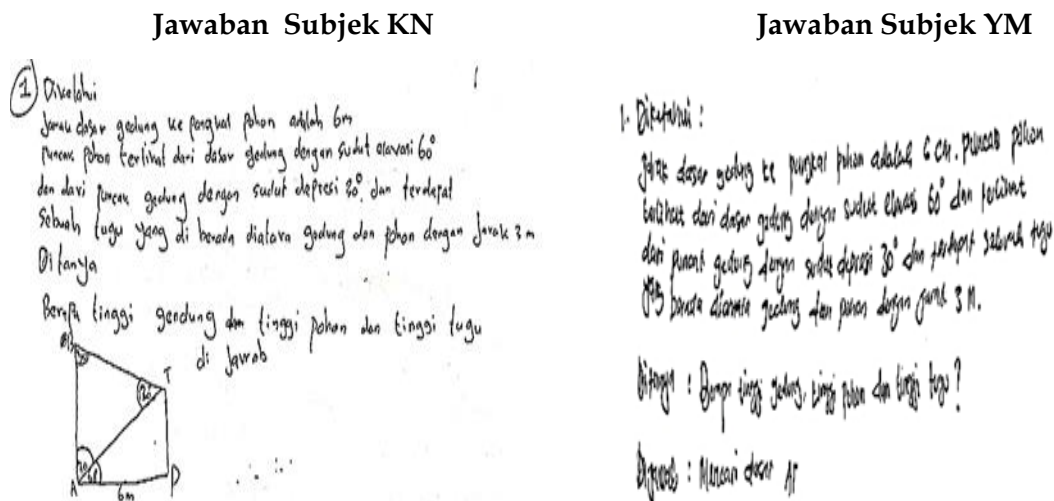 Jawaban Subjek KN
1 Diketahui
Jarak dasar gedung ke pangkal pohon adalah 6m
Puncak pohon terlihat dari dasar gedung dengan sudut elavasi 60°
dan dari puncak gedung dengan sudut depresi 30° dan terdapat
Sebuah tugu yang di berada diatara gedung dan pohon dengan Jarak 3 m
Di tanya
Berapa tinggi gendung dan tinggi pohon dan tinggi tugu
di Jawab
T
A
6m
Jawaban Subjek YM
1. Diketahui :
Jarak dasar gedung ke pangkal pohon adalah 6 cm. Puncak pohon
terlihat dari dasar gedung dengan sudut elavasi 60° dan terlihat
dari puncak gedung dengan sudut depresi 30° dan terdapat sebuah tugu
yang berada diantara gedung dan pohon dengan jarak 3 M.
Ditanya : Berapa tinggi gedung, tinggi pohon dan tinggi tugu ?
Dijawab : Mencari dasar AP